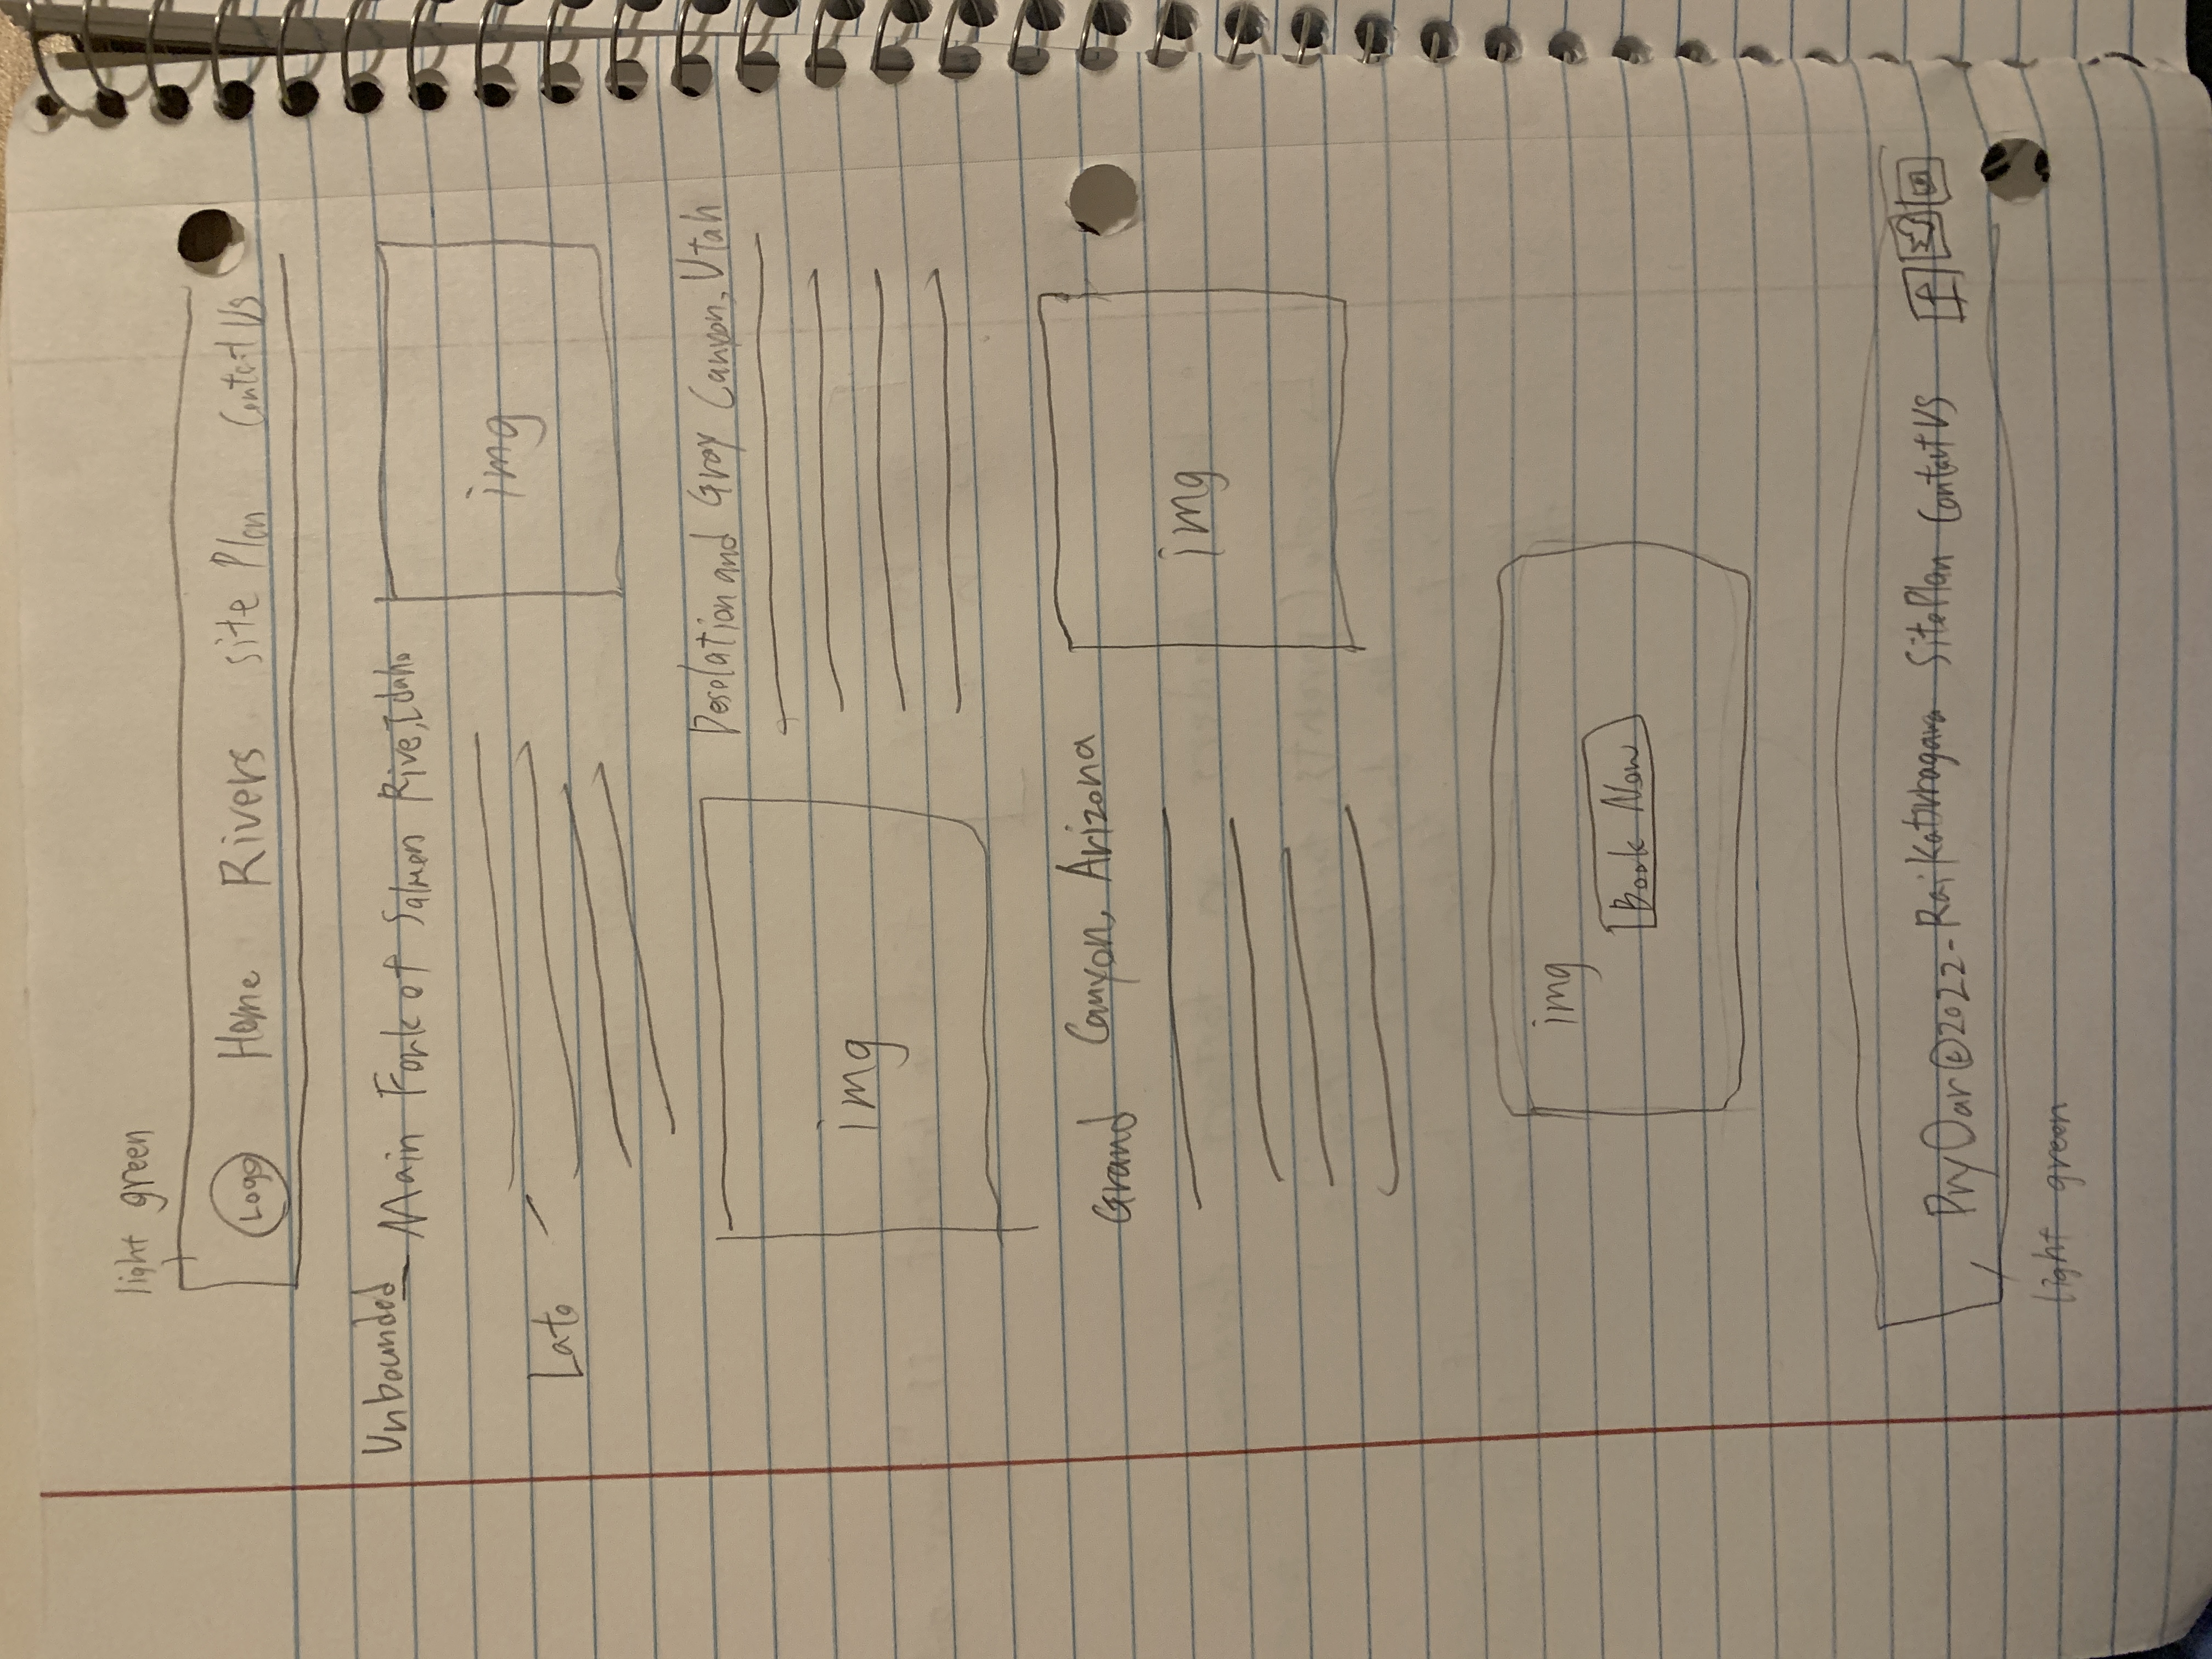 light green
Logo Home Rivers site Plan Contact Us
Unbounded Main Fork of Salmon Rive, Idaho
img
Lato
Desolation and Gray Canyon, Utah
img
Grand Canyon, Arizona
img
img
Book Now
Pry Oar ©2022 - Rai Katsuragawa Site Plan Contact US f
light green